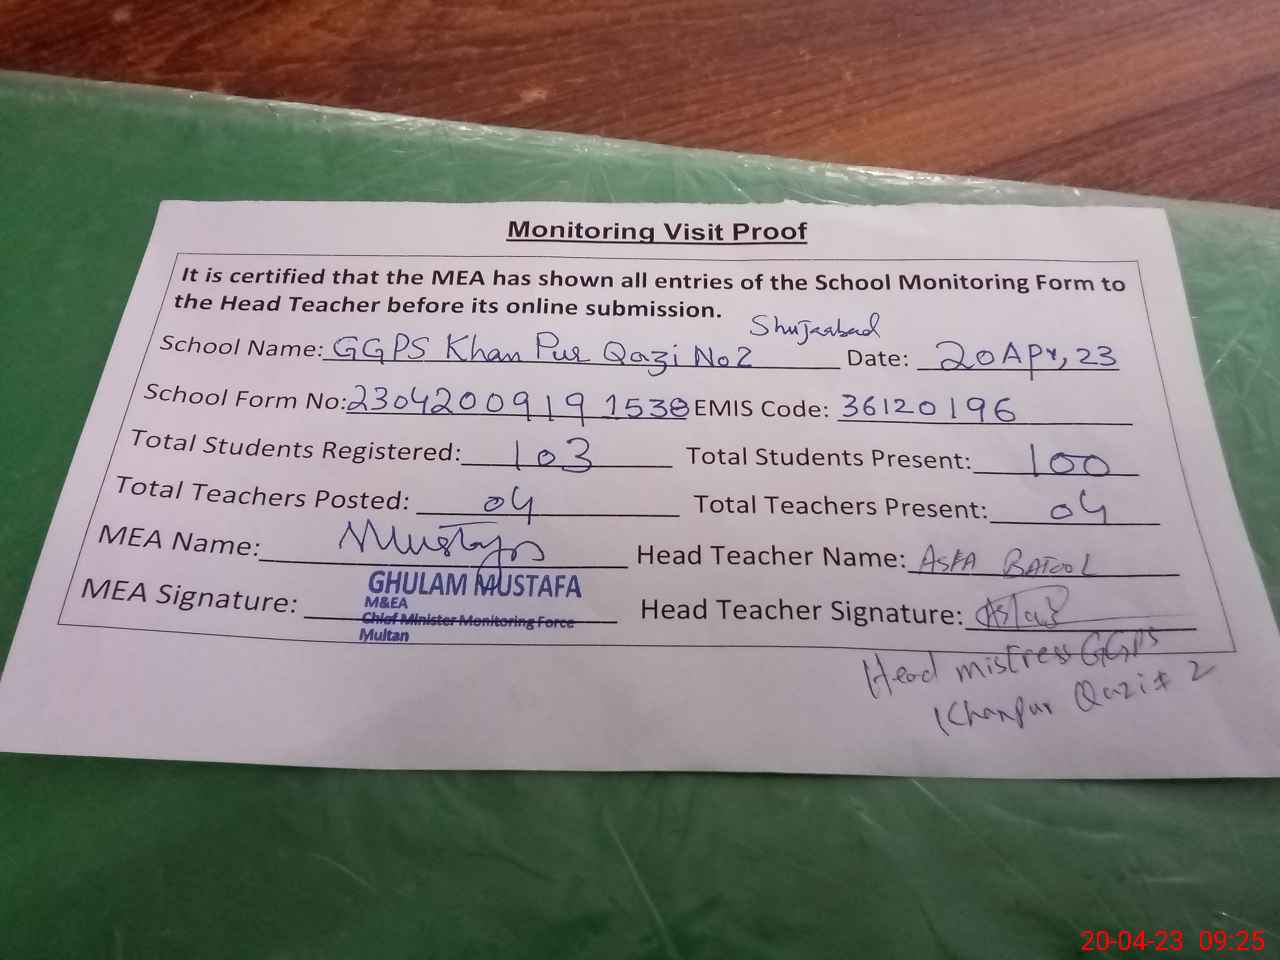 Monitoring Visit Proof
It is certified that the MEA has shown all entries of the School Monitoring Form to
the Head Teacher before its online submission.
Shujaabad
School Name: GGPS Khan Pur Qazi No 2 Date: 20 Apr, 23
School Form No: 2304200919 1538 EMIS Code: 36120196
Total Students Registered: 103 Total Students Present: 100
Total Teachers Posted: 04 Total Teachers Present: 04
MEA Name: Mustafa Head Teacher Name: Asfa Batool
GHULAM MUSTAFA
M&EA
MEA Signature: Chief Minister Monitoring Force Head Teacher Signature:
Multan
Head mistress GGPS
Khanpur Qazi # 2
20-04-23 09:25